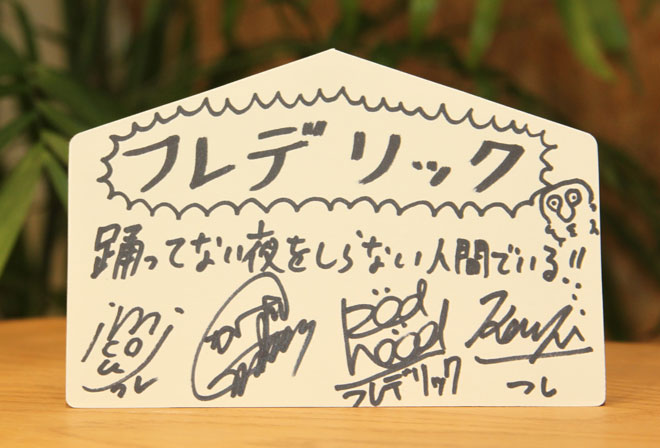 フレデリック
踊ってない夜をしらない人間でいる!!...
フレ
röd
hööd
フレデリック
Kouji
フレ